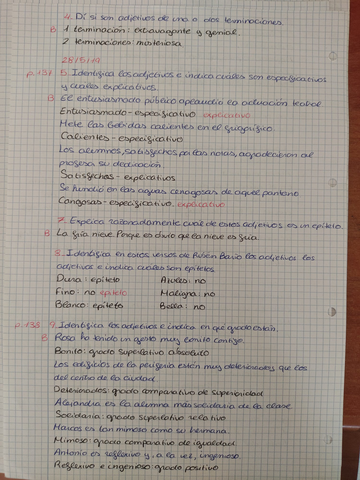 4. Di si son adjetivos de una o dos terminaciones.
B 1 terminación: extravagante y genial.
2 terminaciones: misteriosa.
28/5/19
p.131 5. Identifica los adjetivos e indica cuales son especificativos
y cuales explicativos.
B El entusiasmado público aplaudió la actuación teatral
Entusiasmado - especificativo explicativo
Mete las bebidas calientes en el frigorífico
Calientes - especificativo
Los alumnos, satisfechos por las notas, agradecieron al
profesor su dedicación.
Satisfechos - explicativos
Se hundió en las aguas cenagosas de aquel pantano
Cangosas - especificativo. explicativo
7. Explica razonadamente cual de estos adjetivos es un epíteto.
B La fría nieve Porque es obvio que la nieve es fría.
8. Identifica en estos versos de Rubén Darío los adjetivos los
adjetivos e indica cuales son epítetos
Dura: epíteto
Fino: no epíteto Maligna: no
Blanco: epíteto Bella: no
p.133 9. Identifica los adjetivos e indica en que grado están.
B Rosa ha tenido un gesto muy bonito contigo.
Bonito: grado superlativo absoluto
Los edificios de la periferia están muy deteriorados que los
del centro de la ciudad
Deteriorados: grado comparativo de superioridad
Alejandra es la alumna más solidaria de la clase
Solidaria: grado superlativo relativo
Marcos es tan mimoso como su hermana.
Mimoso: grado comparativo de igualdad
Antonio es reflexivo y, a la vez, ingenioso.
Reflexivo e ingenioso: grado positivo